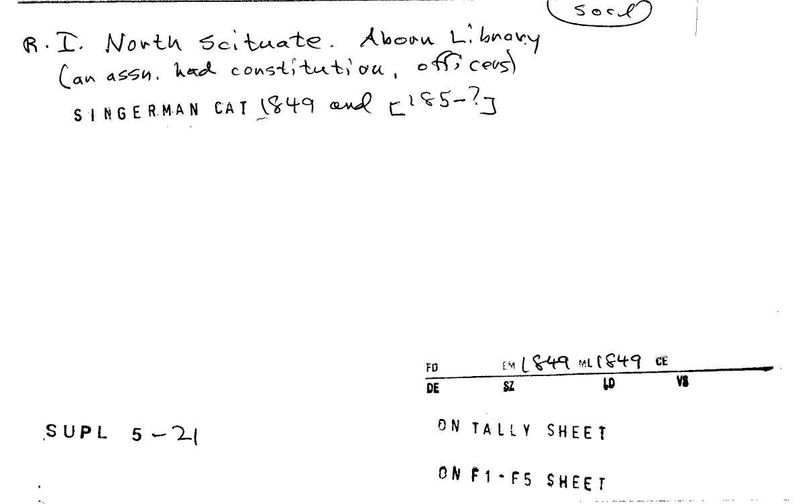 socl
R.I. North Scituate. Aborn Library
(an assn. had constitution, officers)
SINGERMAN CAT 1849 and [185-?]
FD EM 1849 ML 1849 CE
DE SZ LO VS
SUPL 5-21
ON TALLY SHEET
ON F1-F5 SHEET